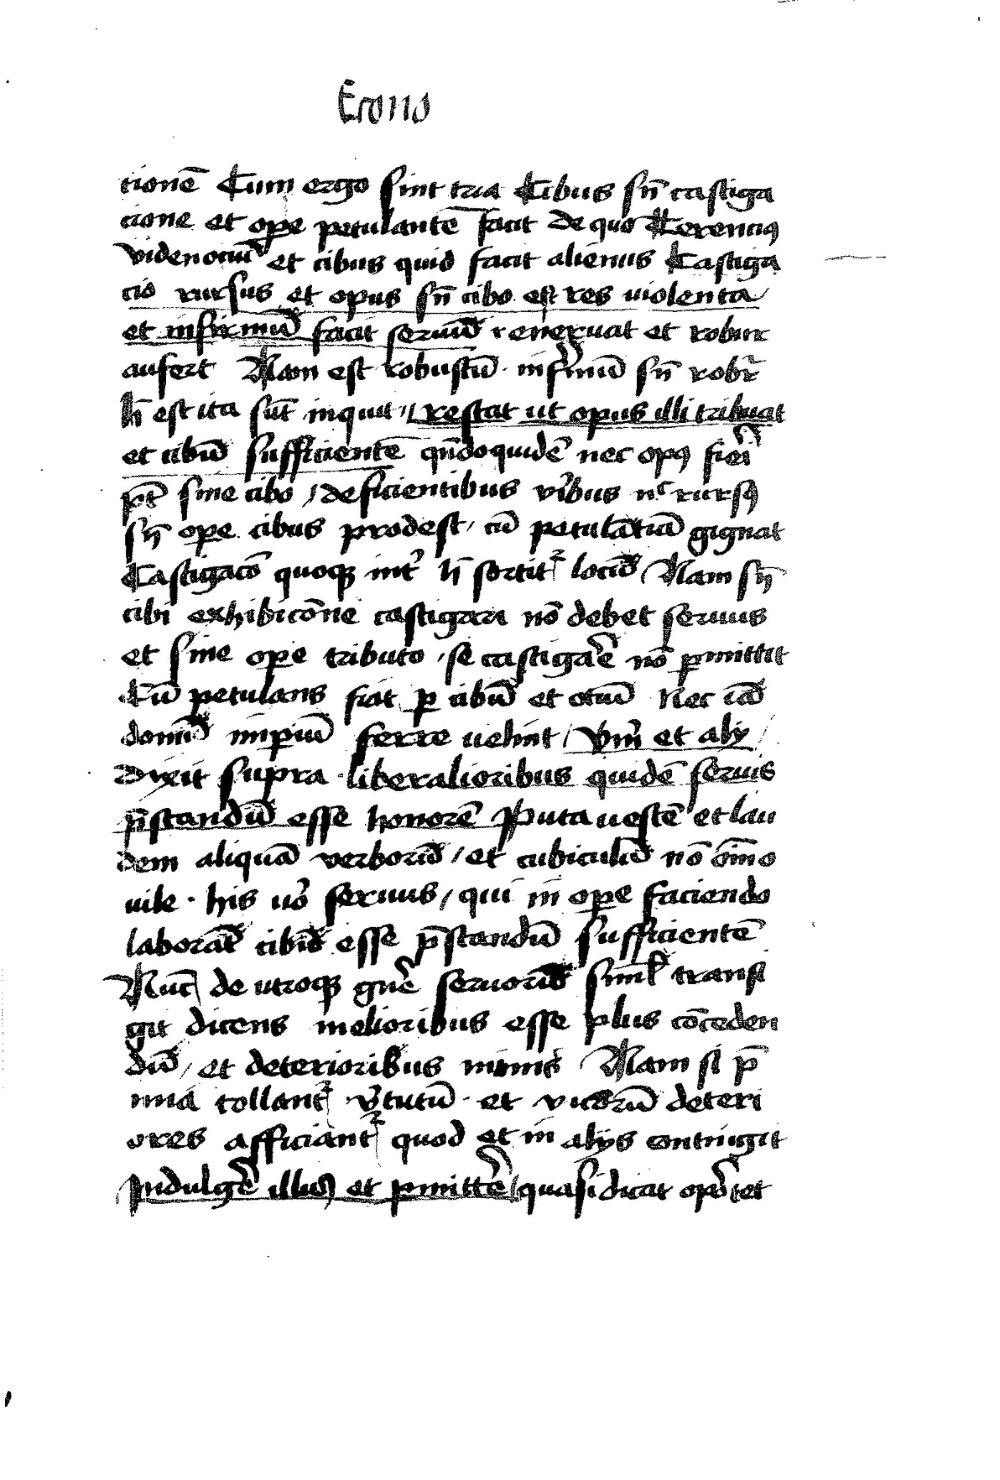 Econo
tionē Cum ergo sint tria Cibus sn̄ castiga
cione et ope petulantē facit de quo Terencius
videnociū et cibus quid facit alienus Castiga
cio rursus et opus sn̄ cibo est res uiolenta
et infirmū facit seruū enexuat et robur
aufert Nam est robustū infirmū sn̄ robr̄
h̄ est ita sūt inquit restat ut opus illi tribuat
et cibū sufficientē qn̄doquidē nec opꝰ fieri
pt̄ sine cibo / deficientibus viribus nͨ rursꝰ
sn̄ ope cibus prodest / cū petulātiā gignat
Castigacō quoque int̾ h̄ sortit̾ locū / Nam sn̄
cibi exhibicōne castigari nō debet seruus
et sine ope tributo / se castigare nō ꝑmittit
Cū petulans fiat ꝑ cibū et otiū Nec iā
domī impiū ferre uelint / Vin̄ et aly /
Dixit supra liberalioribus quidē seruis
p̄standū esse honorē Puta uestē et lau
dem aliquā verborū / et cubiculū nō omīno
uile · his uō seruus / qui in ope faciendo
laborāt cibū esse p̄standū sufficientē
Nūc de utroque gn̄e seruorū siml̾ transi
git dicens melioribus esse plus cōceden
dū / et deterioribus minus Nam si p̄
mia tollant̾ v̾tutū · et viciorū deteri
ores afficiant̾ quod et in alys contingit
Indulgē̾ illis et pmitte̾ / quasi dicat oportet